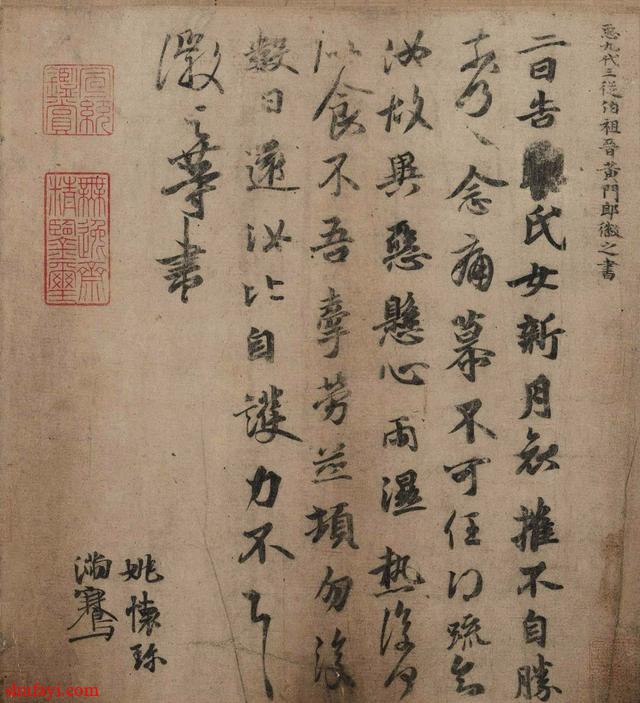 𢘑九代三從伯祖晉黄門郎徽之書
二日告氏女新月哀摧不自勝
奈何〻念痛慕不可任得疏知
汝故異惡懸心雨濕熱復何
似食不吾牽勞並頓勿復
數日還汝比自護力不具
徽之等書
宣統鑑賞
無逸齋精鑒璽
姚懷珍
滿騫
shufayi.com